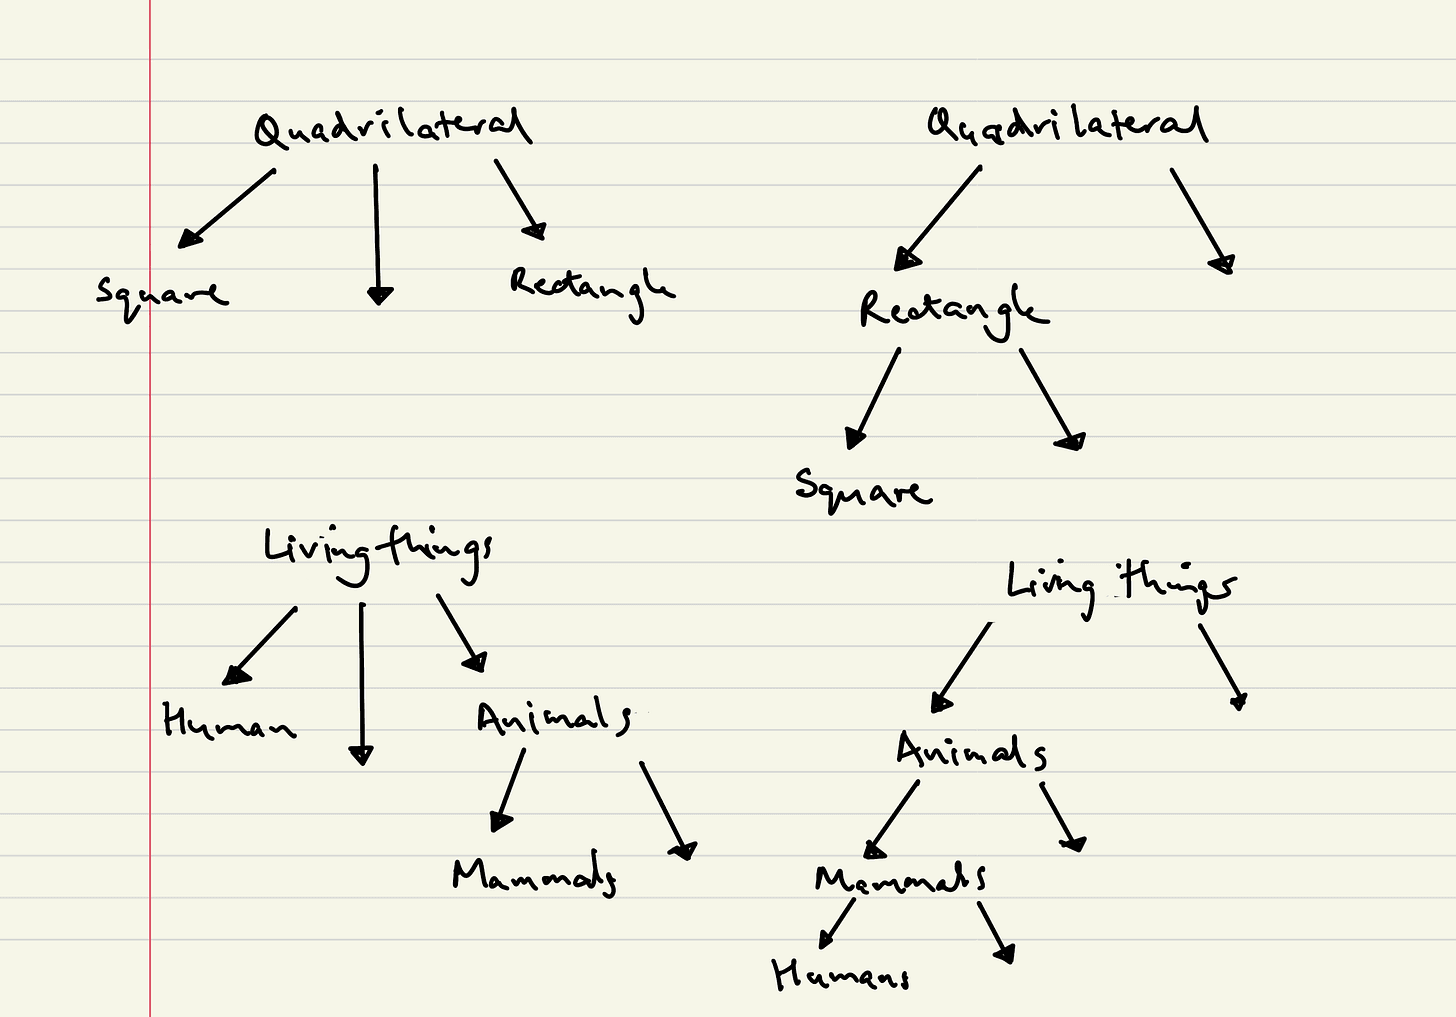 Quadrilateral
Square
Rectangle
Quadrilateral
Rectangle
Square
Living things
Human
Animals
Mammals
Living things
Animals
Mammals
Humans